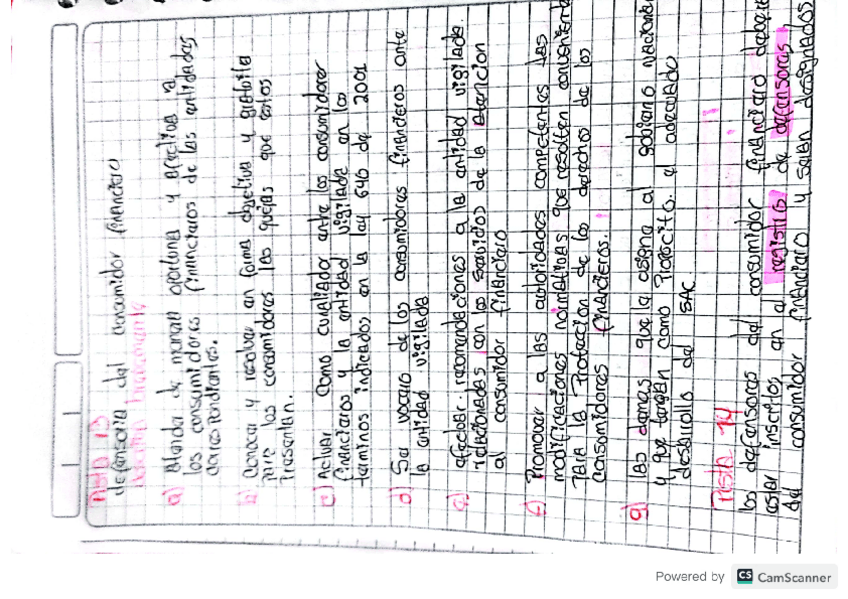 Pista 13
defensoria del consumidor financiero
a) Atender de manera oportuna y efectiva a
los consumidores financieros de las entidades
correspondientes.
b) Conocer y resolver en forma objetiva y gratuita
para los consumidores las quejas que estos
Presenten.
c) Actuar como conciliador entre los consumidores
financieros y la entidad vigilada en los
terminos indicados en la ley 640 de 2001
d) Ser vocero de los consumidores financieros ante
la entidad vigilada
e) efectuar recomendaciones a la entidad vigilada
relacionadas con los servicios de la atencion
al consumidor financiero
f) Promover a las autoridades competentes las
modificaciones normativas que resulten conveniente
para la Proteccion de los derechos de los
Consumidores financieros.
g) las demas que le asigna al gobierno nacional
y que tengan como Proposito. el adecuado
desarrollo del SAC
Pista 14
los defensores del consumidor financiero
estar inscritos en el registro de defensores
del consumidor financiero y sean designados
Powered by CS CamScanner